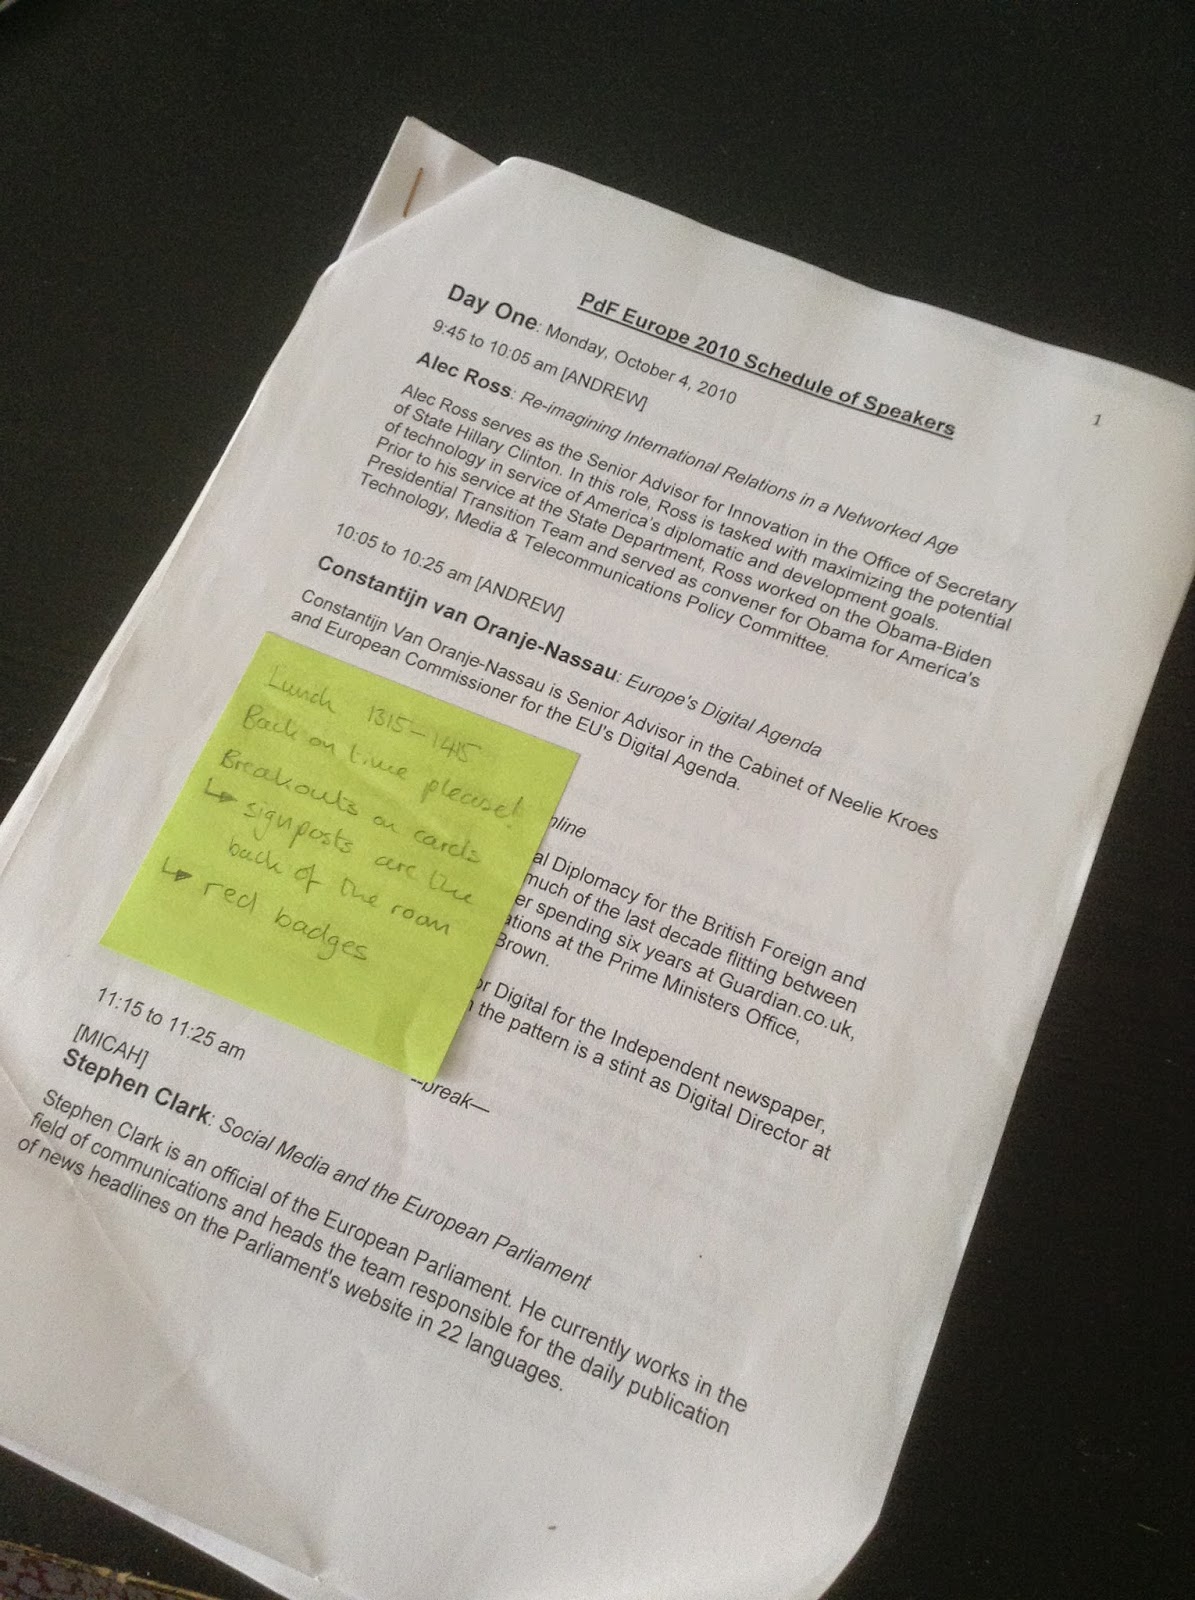 1
PdF Europe 2010 Schedule of Speakers
Day One: Monday, October 4, 2010
9:45 to 10:05 am [ANDREW]
Alec Ross: Re-imagining International Relations in a Networked Age
Alec Ross serves as the Senior Advisor for Innovation in the Office of Secretary
of State Hillary Clinton. In this role, Ross is tasked with maximizing the potential
of technology in service of America's diplomatic and development goals.
Prior to his service at the State Department, Ross worked on the Obama-Biden
Presidential Transition Team and served as convener for Obama for America's
Technology, Media & Telecommunications Policy Committee.
10:05 to 10:25 am [ANDREW]
Constantijn van Oranje-Nassau: Europe's Digital Agenda
Constantijn Van Oranje-Nassau is Senior Advisor in the Cabinet of Neelie Kroes
and European Commissioner for the EU's Digital Agenda.
Lunch 1315-1415
Back on time please!
Breakouts on cards
↳ signposts are the
back of the room
↳ red badges
nline
al Diplomacy for the British Foreign and
much of the last decade flitting between
er spending six years at Guardian.co.uk,
ations at the Prime Ministers Office,
Brown.
or Digital for the Independent newspaper,
the pattern is a stint as Digital Director at
break—
11:15 to 11:25 am
[MICAH]
Stephen Clark: Social Media and the European Parliament
Stephen Clark is an official of the European Parliament. He currently works in the
field of communications and heads the team responsible for the daily publication
of news headlines on the Parliament's website in 22 languages.